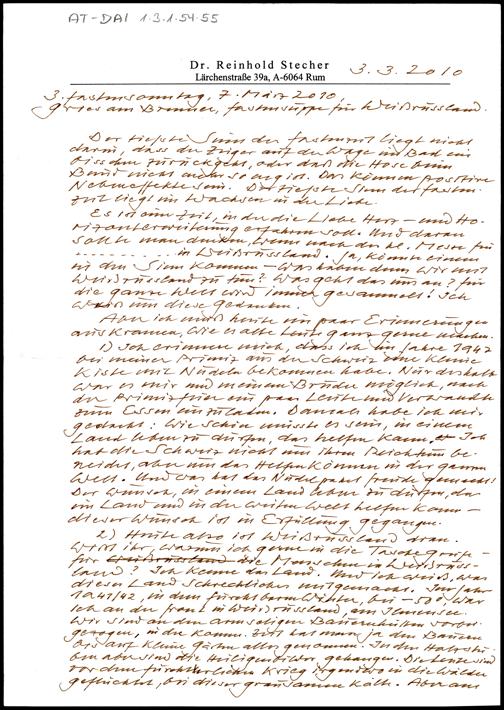 AT-DAI 1.3.1.54.55
Dr. Reinhold Stecher
Lärchenstraße 39a, A-6064 Rum
3.3.2010
3. Fastensonntag, 7. März 2010,
Gries am Brenner, Fastensuppe für Weißrussland.
Der tiefste Sinn der Fastenzeit liegt nicht
darin, dass der Zeiger auf der Waage im Bad ein
bisschen zurückgeht, oder daß die Hose beim
Bund nicht mehr so eng ist. Das können positive
Nebeneffekte sein. Der tiefste Sinn der Fasten-
zeit liegt im Wachsen in der Liebe.
Es ist eine Zeit, in der die Liebe Herz- und Ho-
rizonterweiterung erfahren soll. Und daran
sollte man denken, wenn nach der hl. Messe für
in Weißrussland. Ja, könnte einem
in den Sinn kommen - Was haben denn wir mit
Weißrussland zu tun? Was geht das uns an? Für
die ganze Welt wird immer gesammelt! Ich
weiß um diese Gedanken.
Aber ich muß heute ein paar Erinnerungen
auskramen, wie es alte Leute ganz gerne machen.
1) Ich erinnere mich, dass ich im Jahre 1947
bei meiner Primiz aus der Schweiz eine kleine
Kiste mit Nudeln bekommen habe. Nur deshalb
war es mir und meinem Bruder möglich, nach
der Primizfeier ein paar Leute und Verwandte
zum Essen einzuladen. Damals habe ich mir
gedacht: Wie schön müsste es sein, in einem
Land leben zu dürfen, das helfen kann. Ich
hab die Schweiz nicht um ihren Reichtum be-
neidet, aber um das Helfenkönnen in der ganzen
Welt. Und was hat das Nudelpaket Freude gemacht!
Der Wunsch, in einem Land leben zu dürfen, das
ein Land und in der weiten Welt helfen kann -
dieser Wunsch ist in Erfüllung gegangen.
2) Heute also ist Weißrussland dran.
Wisst ihr, warum ich gerne in die Tasche greife -
für die Menschen in Weißruss-
land? Ich kenne das Land. Und ich weiß, was
dieses Land Schreckliches mitgemacht. Im Jahr
1941/42, in dem furchtbaren Winter, bei -50°, war
ich an der Front in Weißrussland, am Ilmensee.
Wir sind an den armseligen Bauernhütten vorbei-
gezogen, in der Komm. Zeit hat man ja den Bauern
bis auf kleine Gärten alles genommen. In den Holzstu-
ben aber sind die Heiligenbilder gehangen. Die Leute sind
vor dem fürchterlichen Krieg irgendwo in die Wälder
geflüchtet, bei dieser grausamen Kälte. Aber am